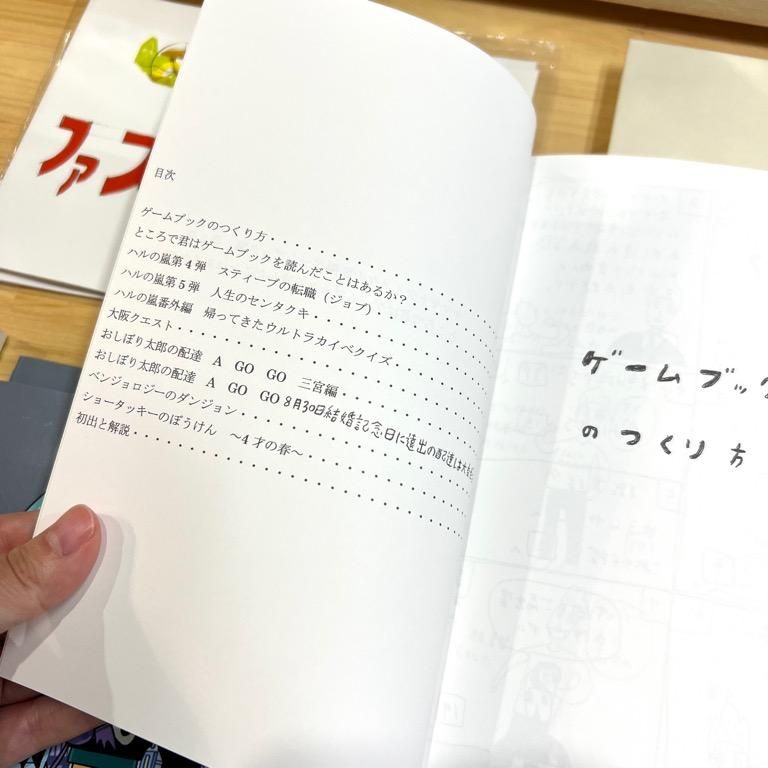 ファ
目次
ゲームブックのつくり方・・・・・・・・・・・・・・・・・・・・
ところで君はゲームブックを読んだことはあるか？・・・・・・
ハルの嵐第４弾　スティーブの転職（ジョブ）・・・・・・・・・
ハルの嵐第５弾　人生のセンタクキ・・・・・・・・・・・・・
ハルの嵐番外編　帰ってきたウルトラカイベクイズ・・・・・・
大阪クエスト・・・・・・・・・・・・・・・・・・・・・・・
おしぼり太郎の配達　A　GO　GO　三宮編・・・・・・・・・
おしぼり太郎の配達　A　GO　GO 8月30日結婚記念日に遠出の配達は大
ベンジョロジーのダンジョン・・・・・・・・・・・・・・・・
ショータッキーのぼうけん　～４才の春～・・・・・・・・・・
初出と解説・・・・・・・・・・・・・・・・・・・・・・・・
ゲームブック
のつくり方